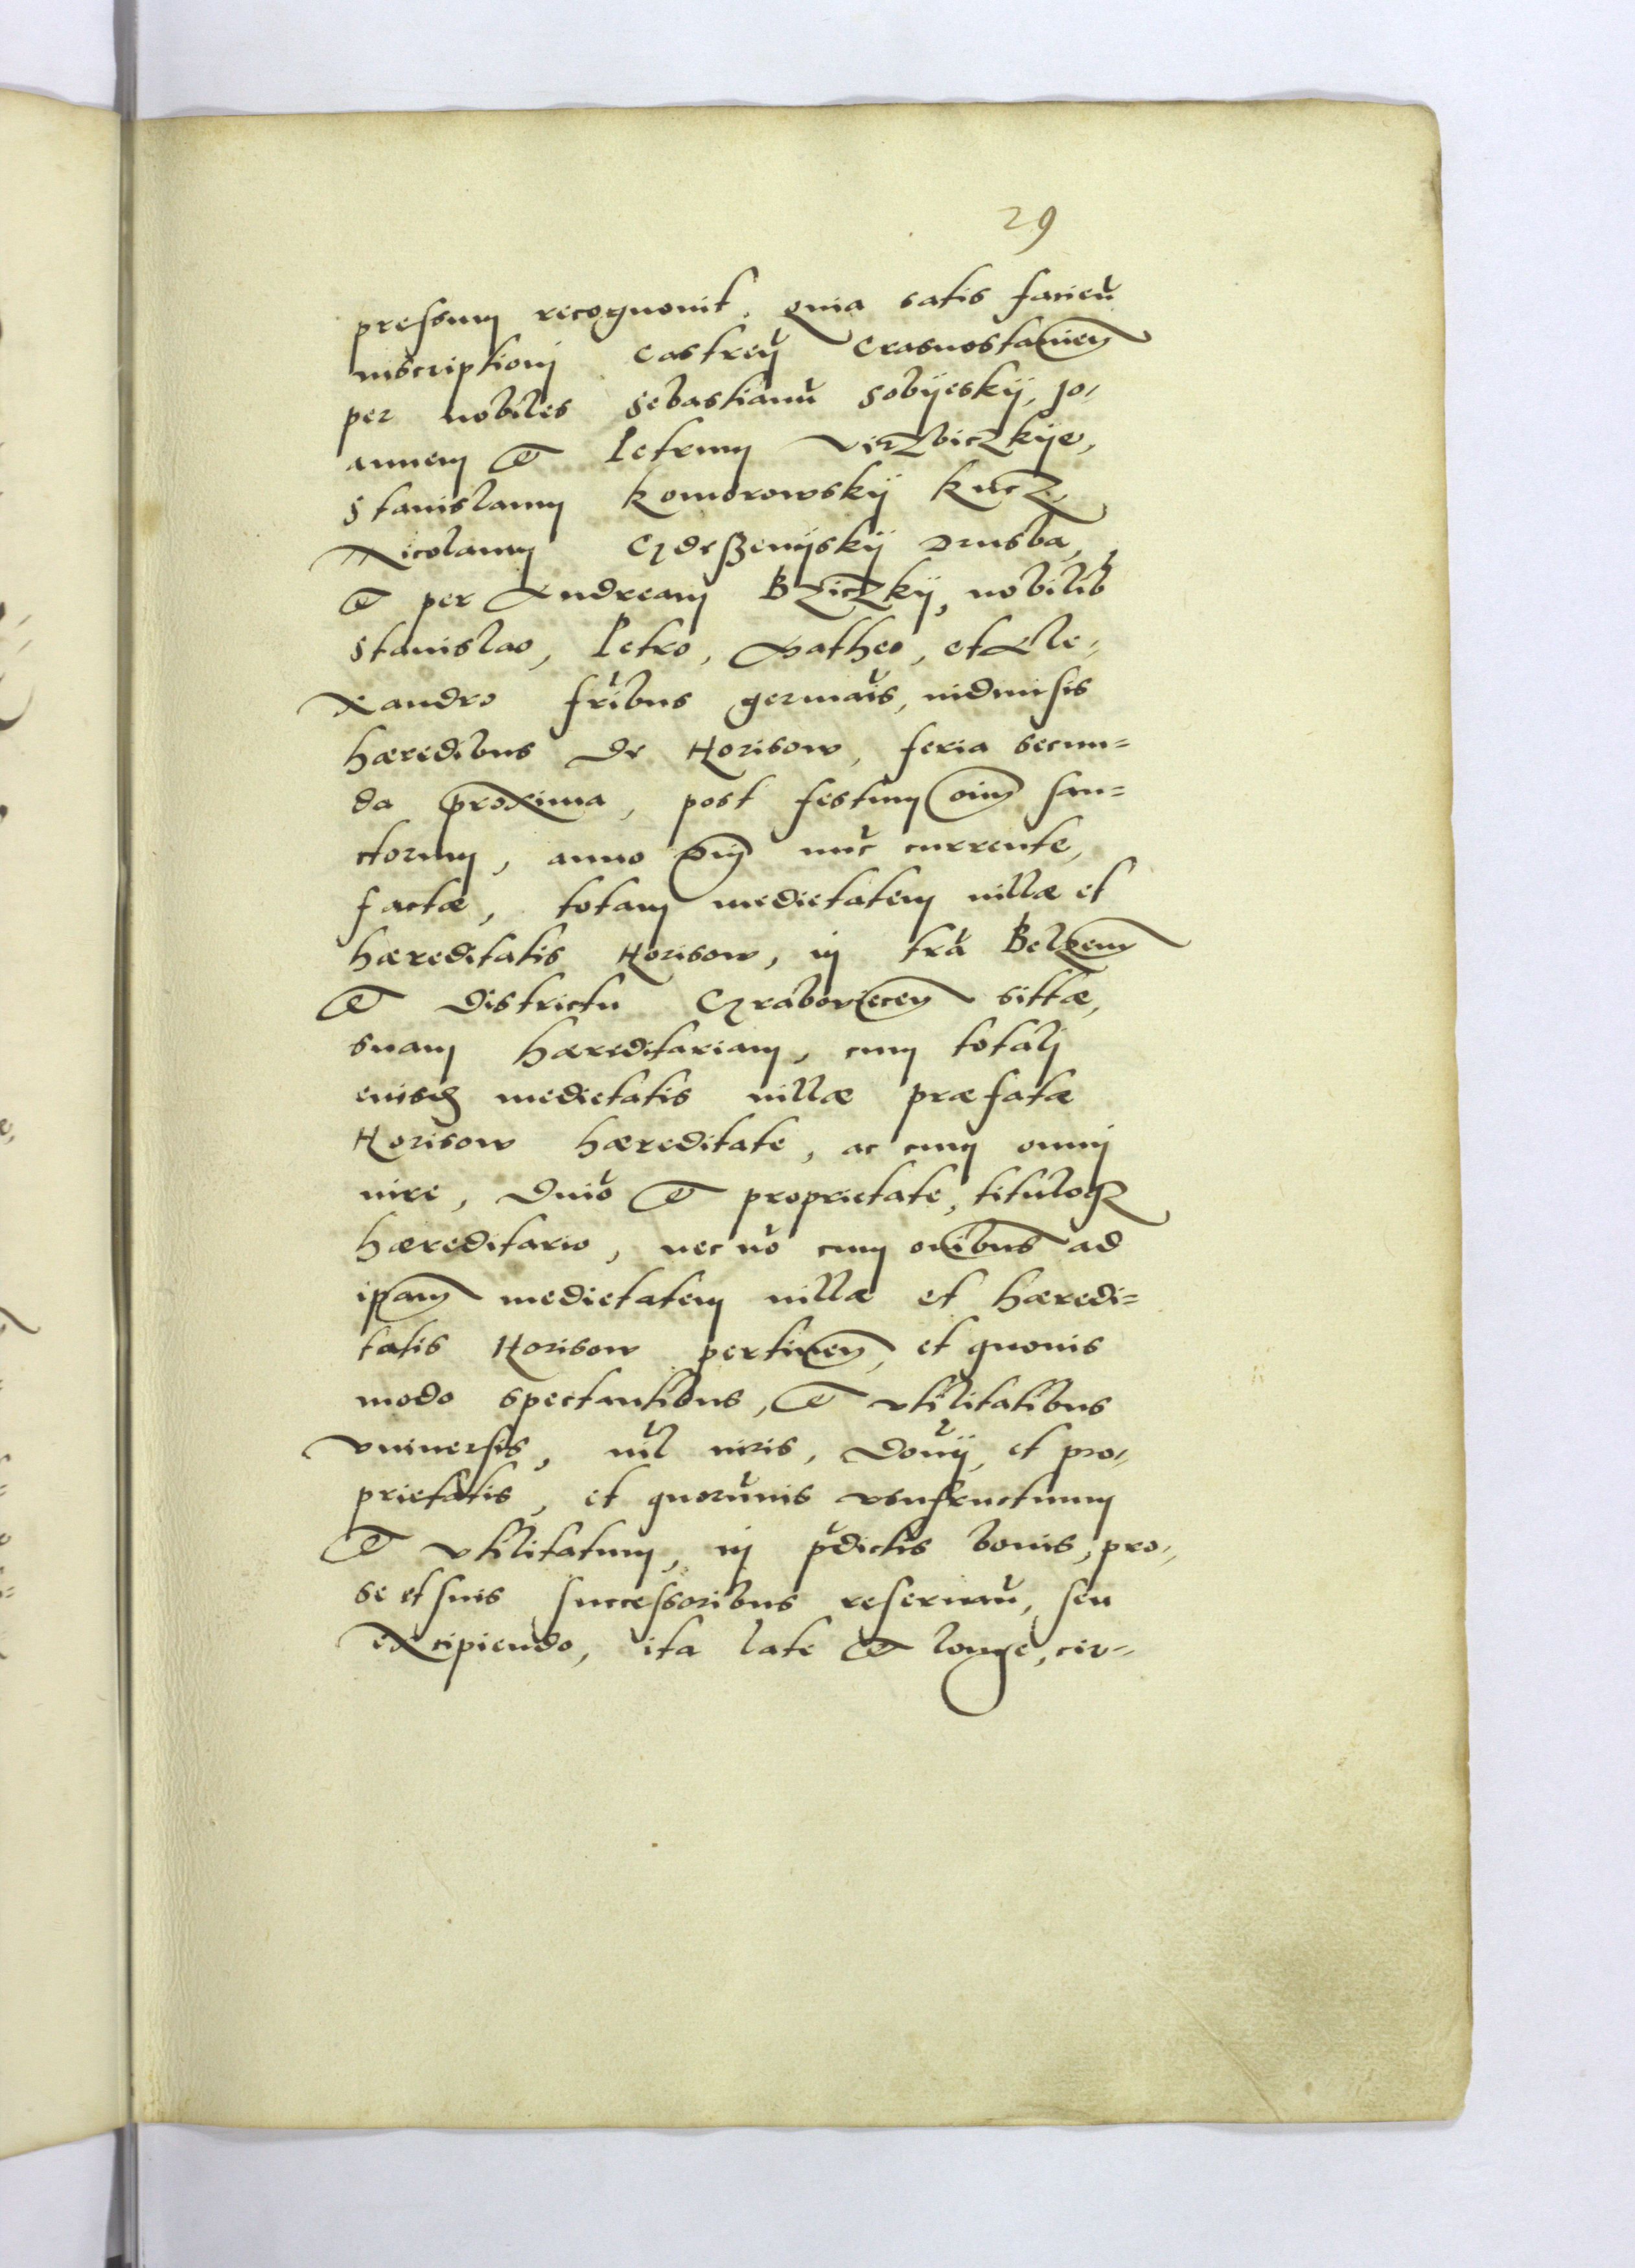 29
pressum recognovit. Quia satis facieñ
inscriptioni Castreñ Crasnostavieñ
per nobiles Sebastianũ Sobÿeskÿ, Jo-
annem et Petrum Virzbiczkÿe,
Stanislaum Komorowskÿ Kucz,
Nicolaum Gdeszenÿskÿ Drusba,
et per Andream Bziczkÿ, nobilib
Stanislao, Petro, Matheo, et Ale-
xandro fribus germais, indivisis
hæredibus de Horisow, feria secun=
da proxima, post festum oim san=
ctorum, anno dni nuc currente,
factæ, totam medietatem villæ et
hæreditatis Horisow, in tra Belzeñ
et districtu Graboviecen sittæ,
suam hæreditariam, cum totali
eiusd medietatis villæ præfatæ
Horisow hæreditate, ac cum omni
iure, dnio et proprietate, tituloq
hæreditario, nec no cum oibus ad
ipam medietatem villæ et hæredi=
tatis Horisow pertineñ, et quovis
modo spectantibus, et vtilitatibus
vniversis, nil iuris, donÿ, et pro-
prietatis, et quoruvis vsufructuum
et vtilitatum, in pdictis bonis, pro-
se et suis successoribus reservañ, seu
excipiendo, ita late et longe, cir-